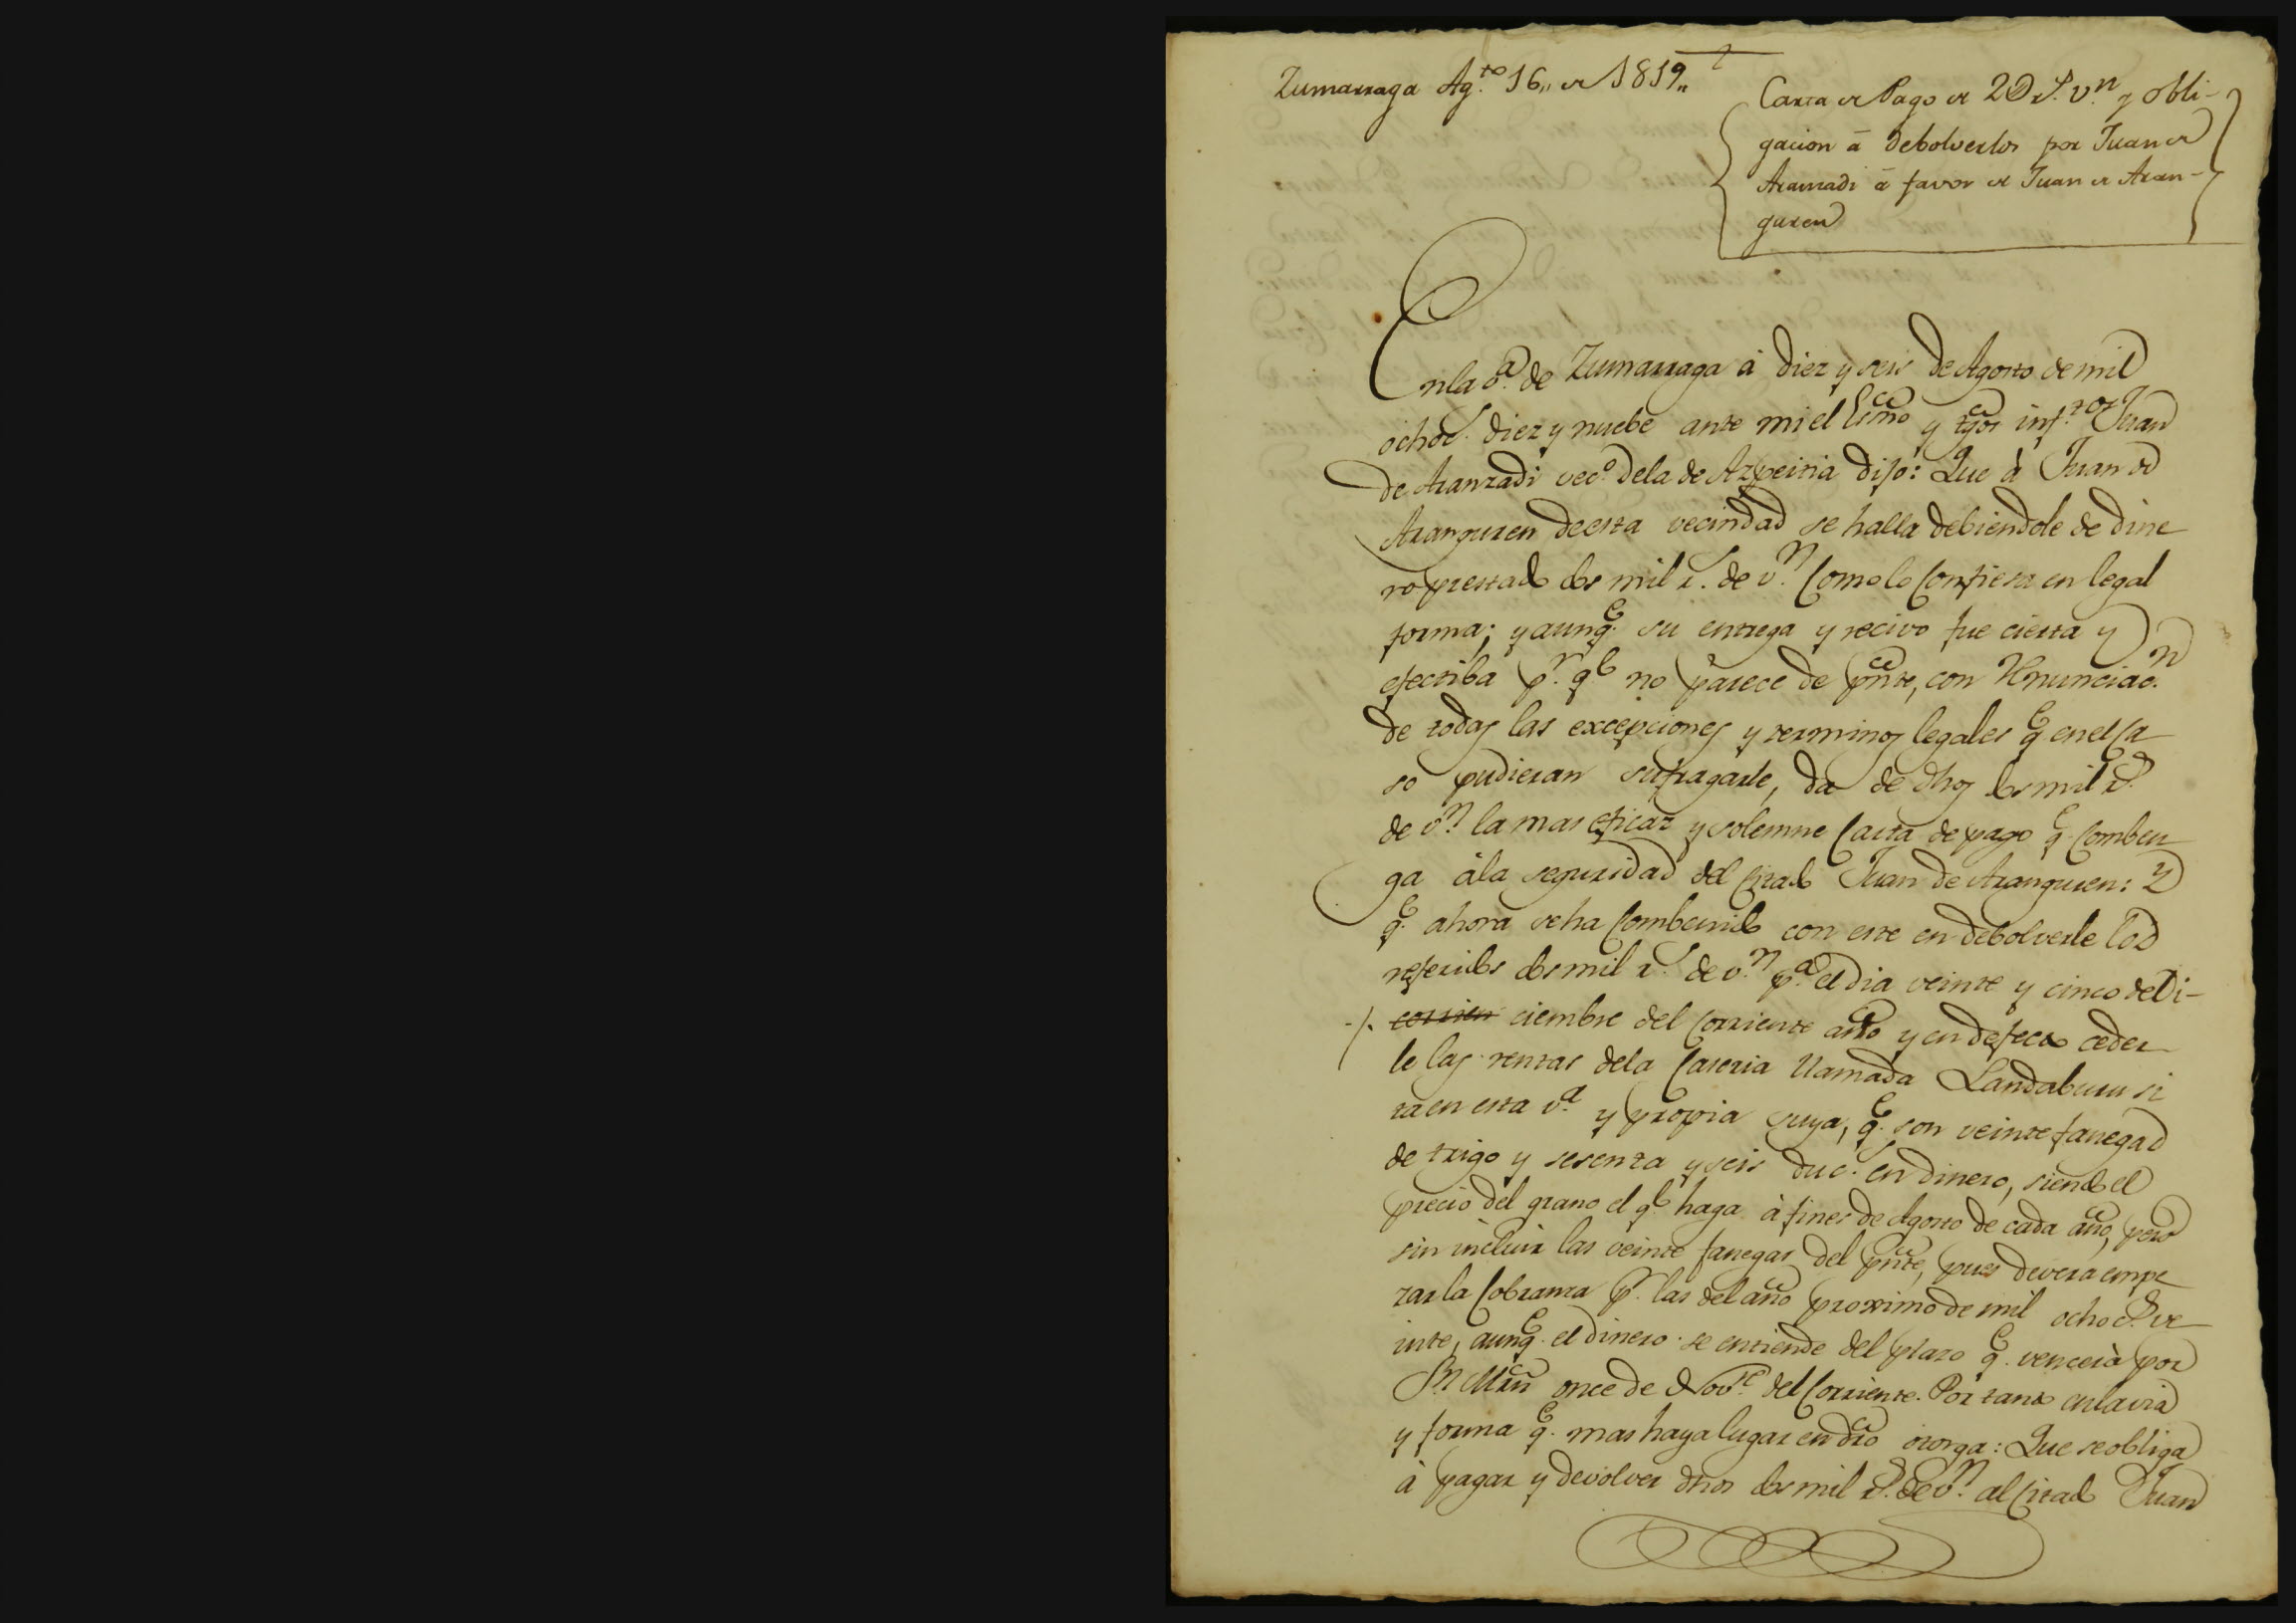 Zumarraga Ag.to 16,, de 1819,,
Carta de Pago de 2D r.s v.n y obli-
gacion à debolverlos por Juan de
Aranzadi à favor de Juan de Aran-
guren
En la v.a de Zumarraga à diez y seis de Agosto de mil
ochoc.s diez y nuebe ante mi el Esno y tgos inf.tos Juan
de Aranzadi vec.o dela de Azpeitia dijo: Que à Juan de
Aranguren de esta vecindad se halla debiendole de dine
ro prestado dos mil r.s de v.n Como lo Confiesa en legal
forma; y aunq.e su entrega y recivo fue cierta y
efectiba p.r q.e no parece de pnte, con Renunciac.n
de todas las excepciones y terminos legales q.e en el Ca
so pudieran sufragarle, da de dhos dos mil r.s
de v.n la mas eficaz y solemne Carta de pago q.e Comben
ga àla seguridad del Citado Juan de Aranguren: Y
q.e ahora se ha Combenido con este en debolverle los
referidos dos mil r.s de v.n p.a el dia veinte y cinco de Di-
-/. corrien ciembre del Corriente año y en defecto ceder
le las rentas dela Caseria llamada Landaburu si
ta en esta v.a y propia suya, q.e son veinte fanegas
de trigo y sesenta y seis duc.s en dinero, siendo el
precio del grano el q.e haga à fines de Agosto de cada año, pero
sin incluir las veinte fanegas del pnte, pues devera empe
zar la Cobranza p.r las del año proximo de mil ochoc.s ve
inte, aunq.e el dinero se entiende del plazo q.e vencerà por
S.n Mrn once de Nov.re del Corriente. Por tanto en la via
y forma q.e mas haya lugar en dro otorga: Que se obliga
à pagar y devolver dhos dos mil r.s de v.n al Citado Juan